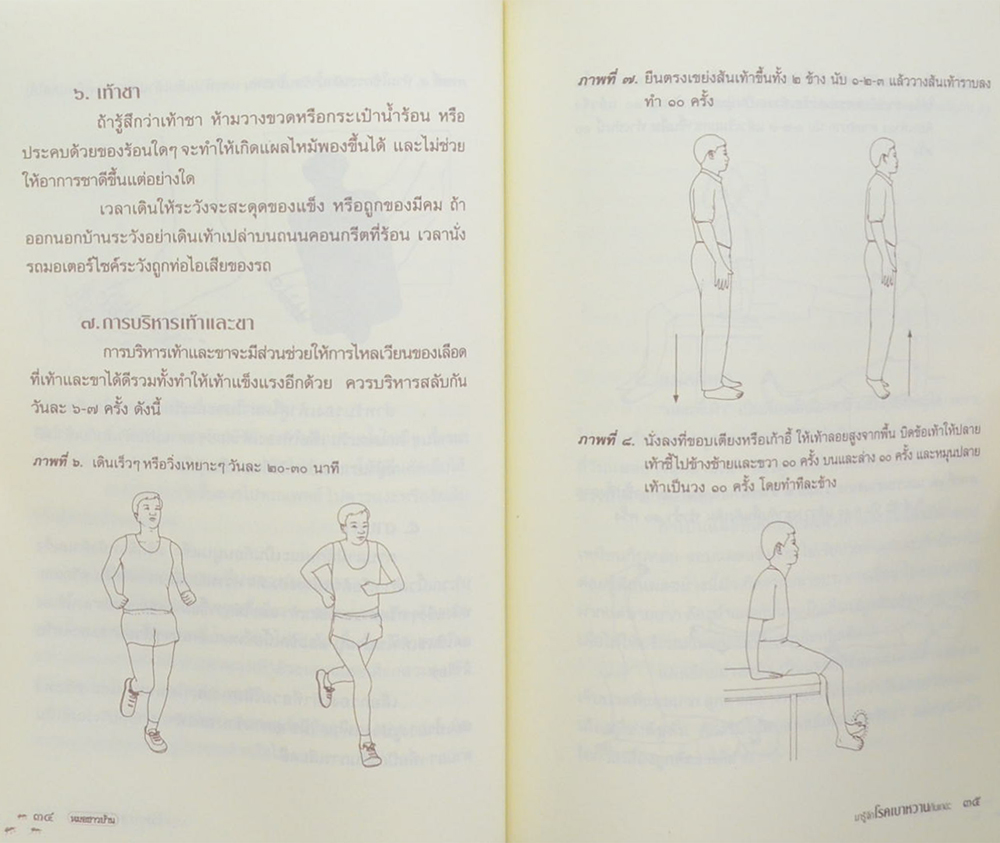 ๖. เท้าชา
ถ้ารู้สึกว่าเท้าชา ห้ามวางขวดหรือกระเป๋าน้ำร้อน หรือ
ประคบด้วยของร้อนใดๆ จะทำให้เกิดแผลไหม้พองขึ้นได้ และไม่ช่วย
ให้อาการชาดีขึ้นแต่อย่างใด
เวลาเดินให้ระวังจะสะดุดของแข็ง หรือถูกของมีคม ถ้า
ออกนอกบ้านระวังอย่าเดินเท้าเปล่าบนถนนคอนกรีตที่ร้อน เวลานั่ง
รถมอเตอร์ไซค์ระวังถูกท่อไอเสียของรถ
๗. การบริหารเท้าและขา
การบริหารเท้าและขาจะมีส่วนช่วยให้การไหลเวียนของเลือด
ที่เท้าและขาได้ดีรวมทั้งทำให้เท้าแข็งแรงอีกด้วย ควรบริหารสลับกัน
วันละ ๖-๗ ครั้ง ดังนี้
ภาพที่ ๖. เดินเร็วๆ หรือวิ่งเหยาะๆ วันละ ๒๐-๓๐ นาที
๓๔ หมอชาวบ้าน
ภาพที่ ๗. ยืนตรงเขย่งส้นเท้าขึ้นทั้ง ๒ ข้าง นับ ๑-๒-๓ แล้ววางส้นเท้าราบลง
ทำ ๑๐ ครั้ง
ภาพที่ ๘. นั่งลงที่ขอบเตียงหรือเก้าอี้ ให้เท้าลอยสูงจากพื้น บิดข้อเท้าให้ปลาย
เท้าชี้ไปข้างซ้ายและขวา ๑๐ ครั้ง บนและล่าง ๑๐ ครั้ง และหมุนปลาย
เท้าเป็นวง ๑๐ ครั้ง โดยทำทีละข้าง
มารู้จักโรคเบาหวานกันเถอะ ๓๕